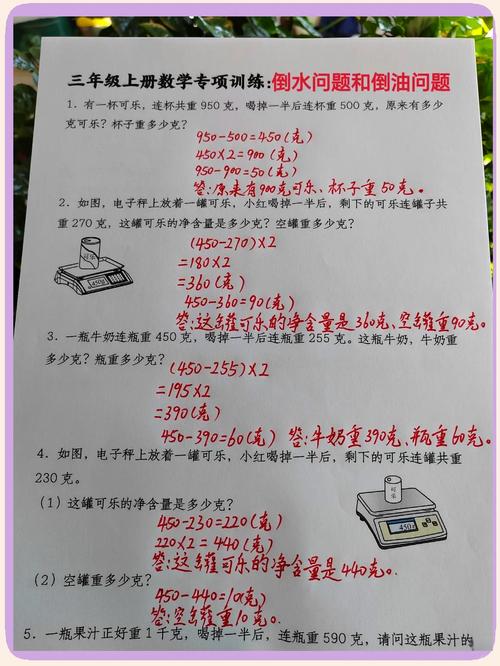 三年级上册数学专项训练:倒水问题和倒油问题
1. 有一杯可乐，连杯共重 950 克，喝掉一半后连杯重 500 克，原来有多少
克可乐？杯子重多少克？
950-500=450(克)
450×2=900(克)
950-900=50(克)
答:原来有900克可乐、杯子重50克。
2. 如图，电子秤上放着一罐可乐，小红喝掉一半后，剩下的可乐连罐子共
重 270 克，这罐可乐的净含量是多少克？空罐重多少克？
可乐
450g
(450-270)×2
=180×2
=360(克)
450-360=90(克)
答:这罐可乐的净含量是360克、空罐重90克。
3. 一瓶牛奶连瓶重 450 克，喝掉一半后连瓶重 255 克。这瓶牛奶，牛奶重
多少克？瓶重多少克？
(450-255)×2
=195×2
=390(克)
450-390=60(克) 答:牛奶重390克、瓶重60克。
4. 如图，电子秤上放着一罐可乐，小红喝掉一半后，剩下的可乐连罐共重
230 克。
可乐
450g
(1) 这罐可乐的净含量是多少克？
450-230=220(克)
220×2=440(克)
答:这罐可乐的净含量是440克。
(2) 空罐重多少克？
450-440=10(克)
答:空罐重10克。
5. 一瓶果汁正好重 1 千克，喝掉一半后，连瓶重 590 克，请问这瓶果汁的